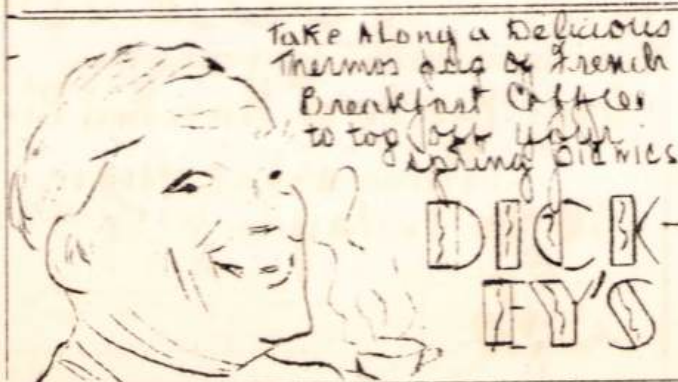 Take Along a Delicious
Thermos jug of French
Breakfast Coffee
to top off your
spring picnics
DICK-
EY'S